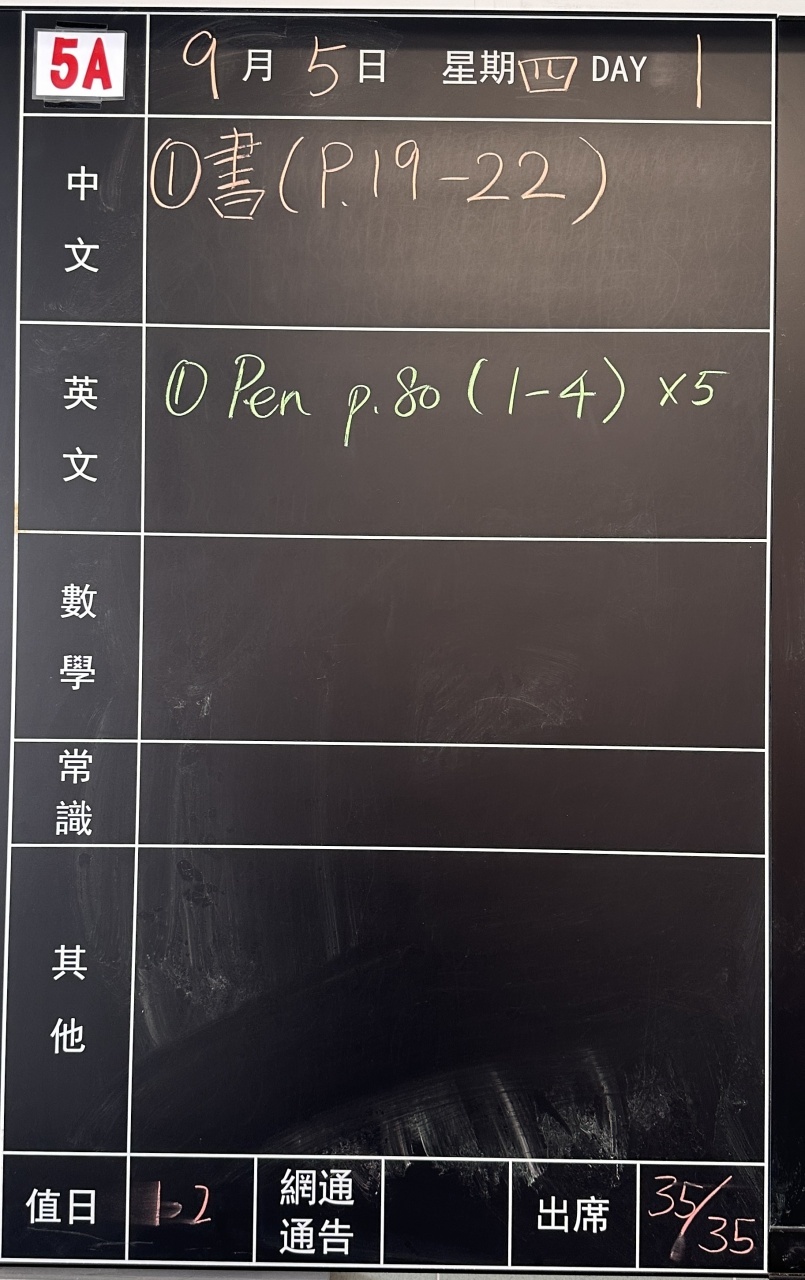 5A 9月5日 星期四 DAY 1
中文 ①書(P.19-22)
英文 ① Pen p.80 (1-4) ×5
數學
常識
其他
值日 1.2 網通通告 出席 35/35